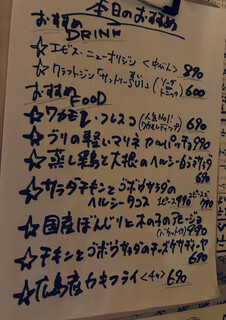 本日のおすすめ
おすすめ
DRINK
☆エビス・ニューオリジン <中びん> 890
☆クラフトジン「サントリーSUI」(ソーダ or トニック) 600
おすすめ
FOOD
☆ワカモレ・フレスコ (人気No1! ワカモレディップ) 690
☆ブリの軽いマリネ カルパッチョ 990
☆蒸し鶏と大根のヘルシー
☆サラダチキンとゴボウサラダの
ヘルシータコス 2ピース490 790
☆国産ぼんじりと木の子のアヒージョ
(バケット付) 990
☆チキンとゴボウサラダのチーズケサディーヤ
690
☆広島産カキフライ <4コ> 690